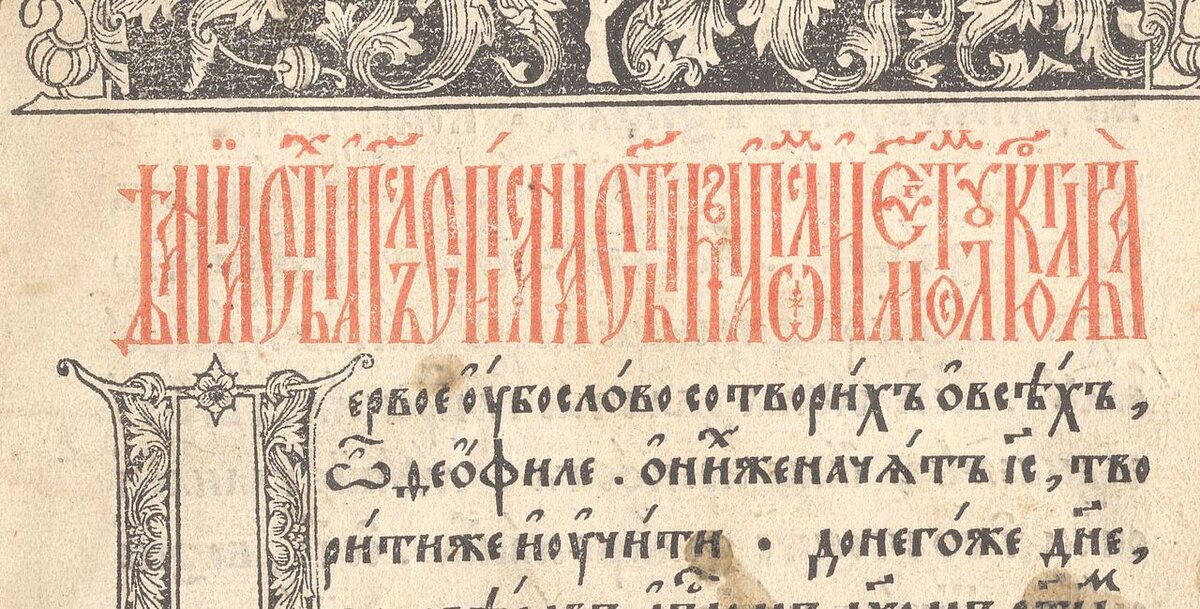 ДѢѦНЇѦ СТ҃ЫХЪ АПⷭ҇ЛЪ СПИСАНА СТ҃ЫМЪ АПⷭ҇ЛОМЪ И ЕѴⷢ҇ЛИСТОМЪ ЛꙊКОЮ
Первое ᲂу҆́бо сло́во сотвори́хъ ѻ҆всѣ́хъ,
ѽ ѳео҆́филе. ѻ҆ни́хже нача́тъ і҆с҃, тво
ри́тиже и҆ᲂу҆чи́ти · донего́же дн҃е,